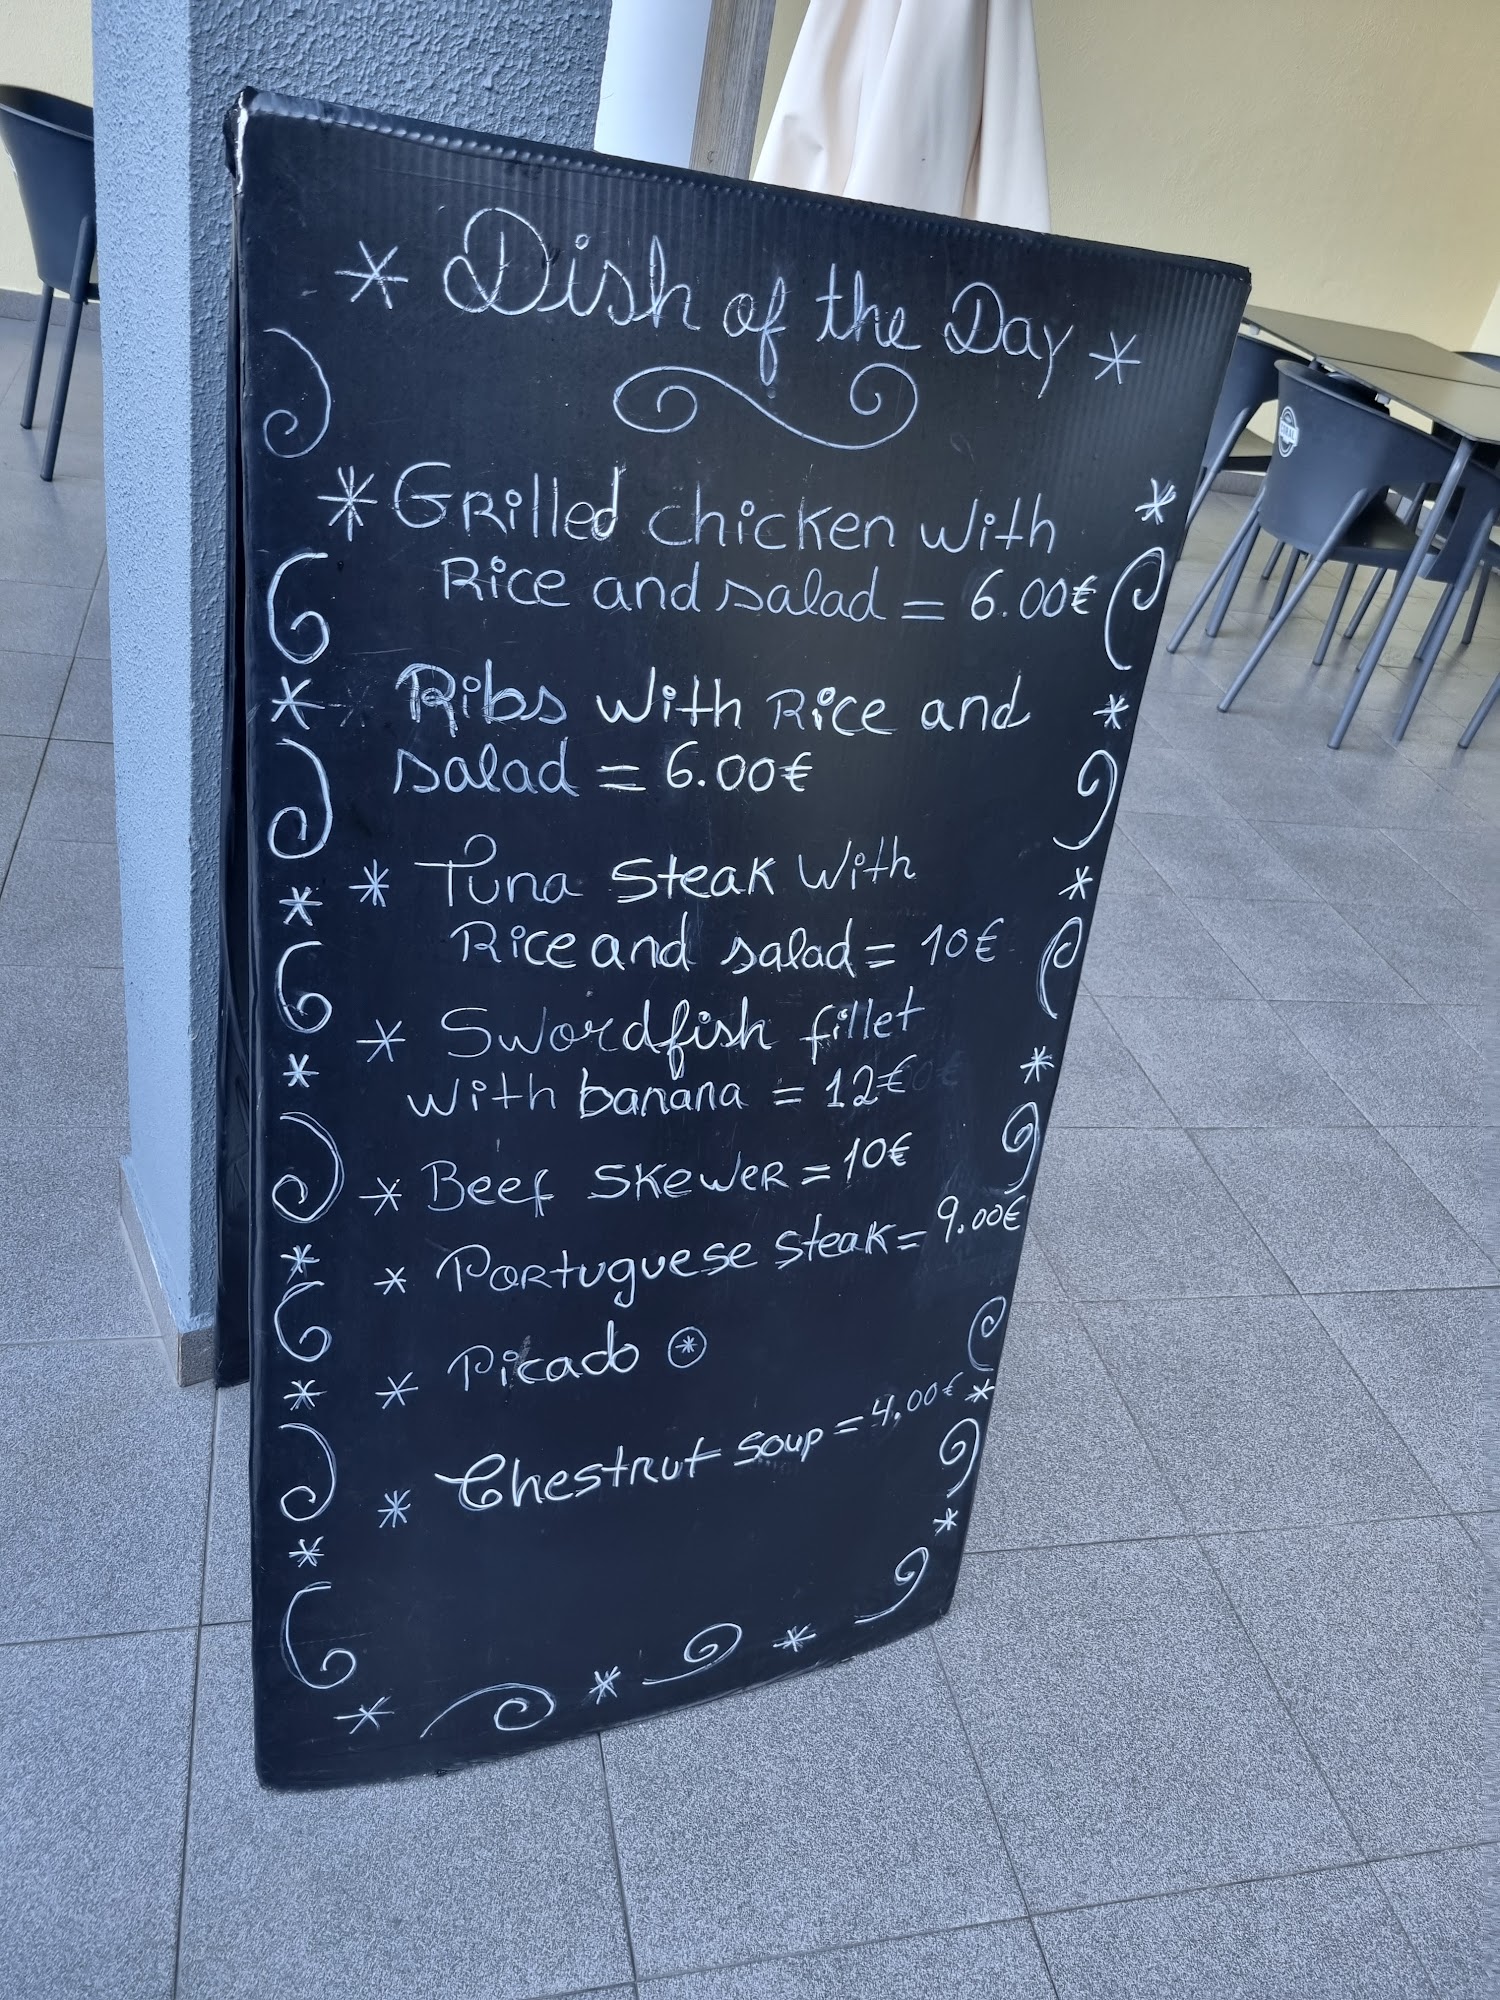 Dish of the Day
Grilled chicken with
Rice and salad = 6.00€
Ribs with Rice and
salad = 6.00€
Tuna steak with
Rice and salad = 10€
Swordfish fillet
with banana = 12€
Beef skewer = 10€
Portuguese steak = 9.00€
Picado
Chestnut soup = 4,00€